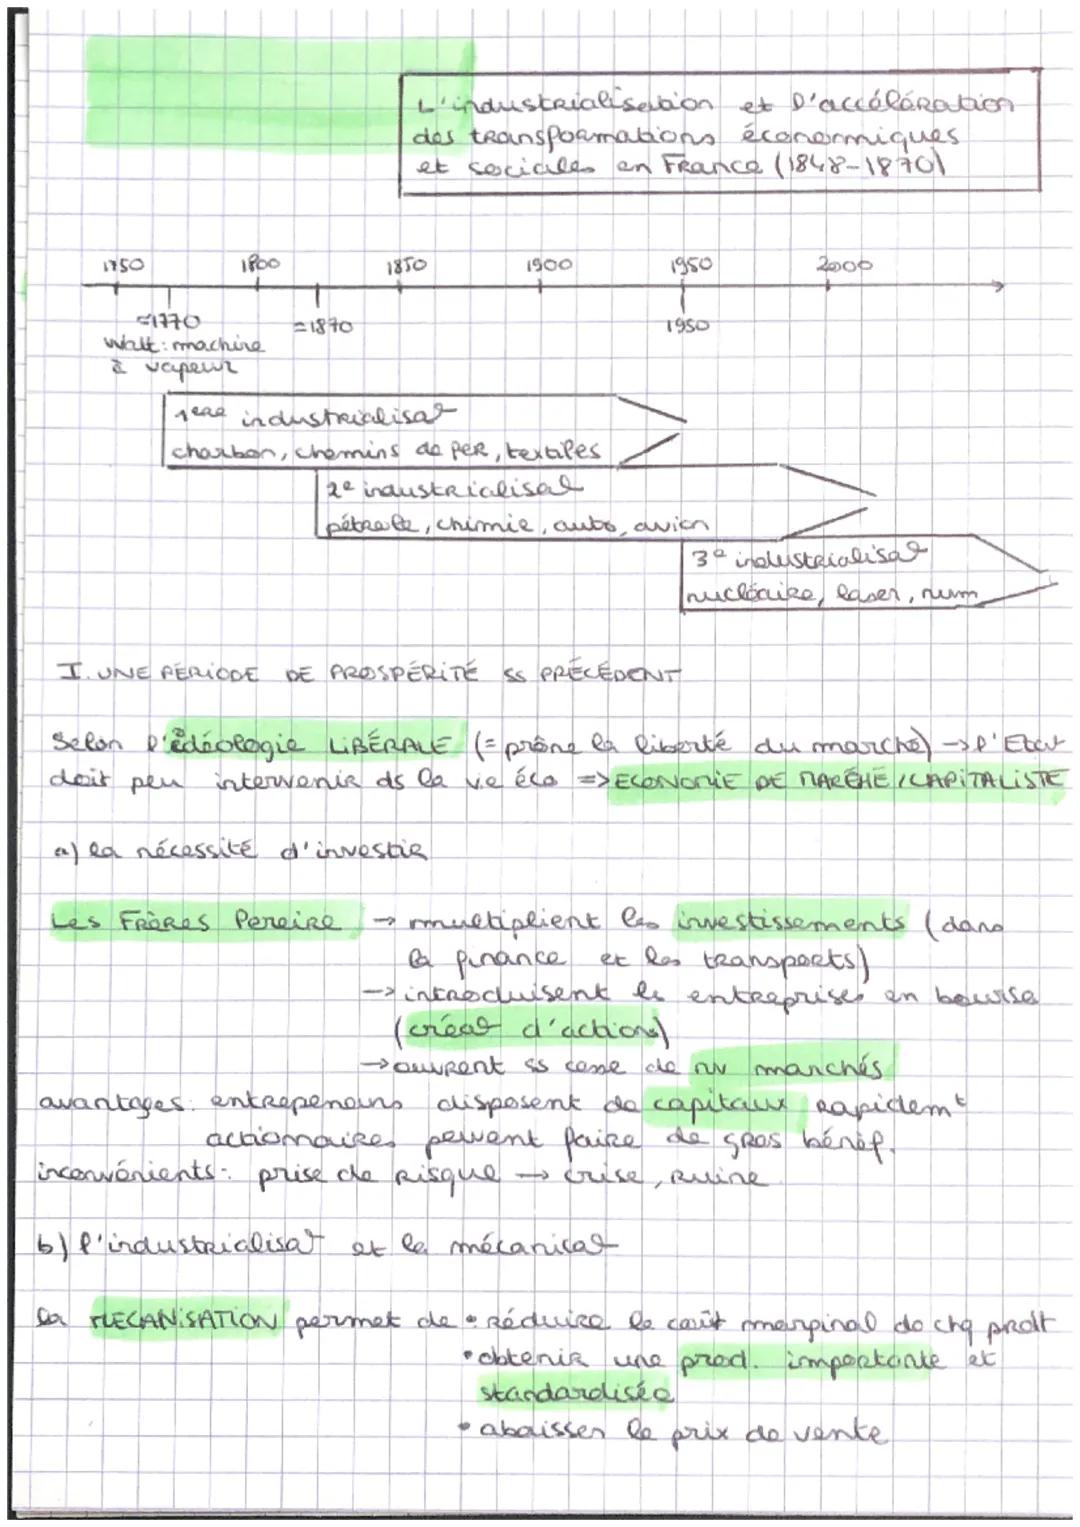 L'industrialisation et l'accélération
des transformations économiques
et sociales en France (1848-1870)
1750 1800 1850 1900 1950 2000
≈1770 ≈1870 1950
Watt : machine
à vapeur
1ere industrialisat°
charbon, chemins de fer, textiles
2e industrialisat°
pétrole, chimie, auto, avion
3e industrialisat°
nucléaire, laser, num
I. UNE PÉRIODE DE PROSPÉRITÉ SS PRÉCÉDENT
Selon l'idéologie LIBÉRALE (= prône la liberté du marché) → l'Etat
doit peu intervenir ds la vie éco => ECONOMIE DE MARCHÉ / CAPITALISTE
a) la nécessité d'investir
Les Frères Pereire → multiplient les investissements (dans
la finance et les transports)
→ introduisent les entreprises en bourse
(créat° d'actions)
→ ouvrent ss cesse de nv marchés
avantages : entrepeneurs disposent de capitaux rapidemt
actionnaires peuvent faire de gros bénéf.
inconvénients : prise de risque → crise, ruine
b) l'industrialisat° et la mécanisat°
la MECANISATION permet de • réduire le coût marginal de chq prdt
• obtenir une prod. importante et
standardisée
• abaisser le prix de vente